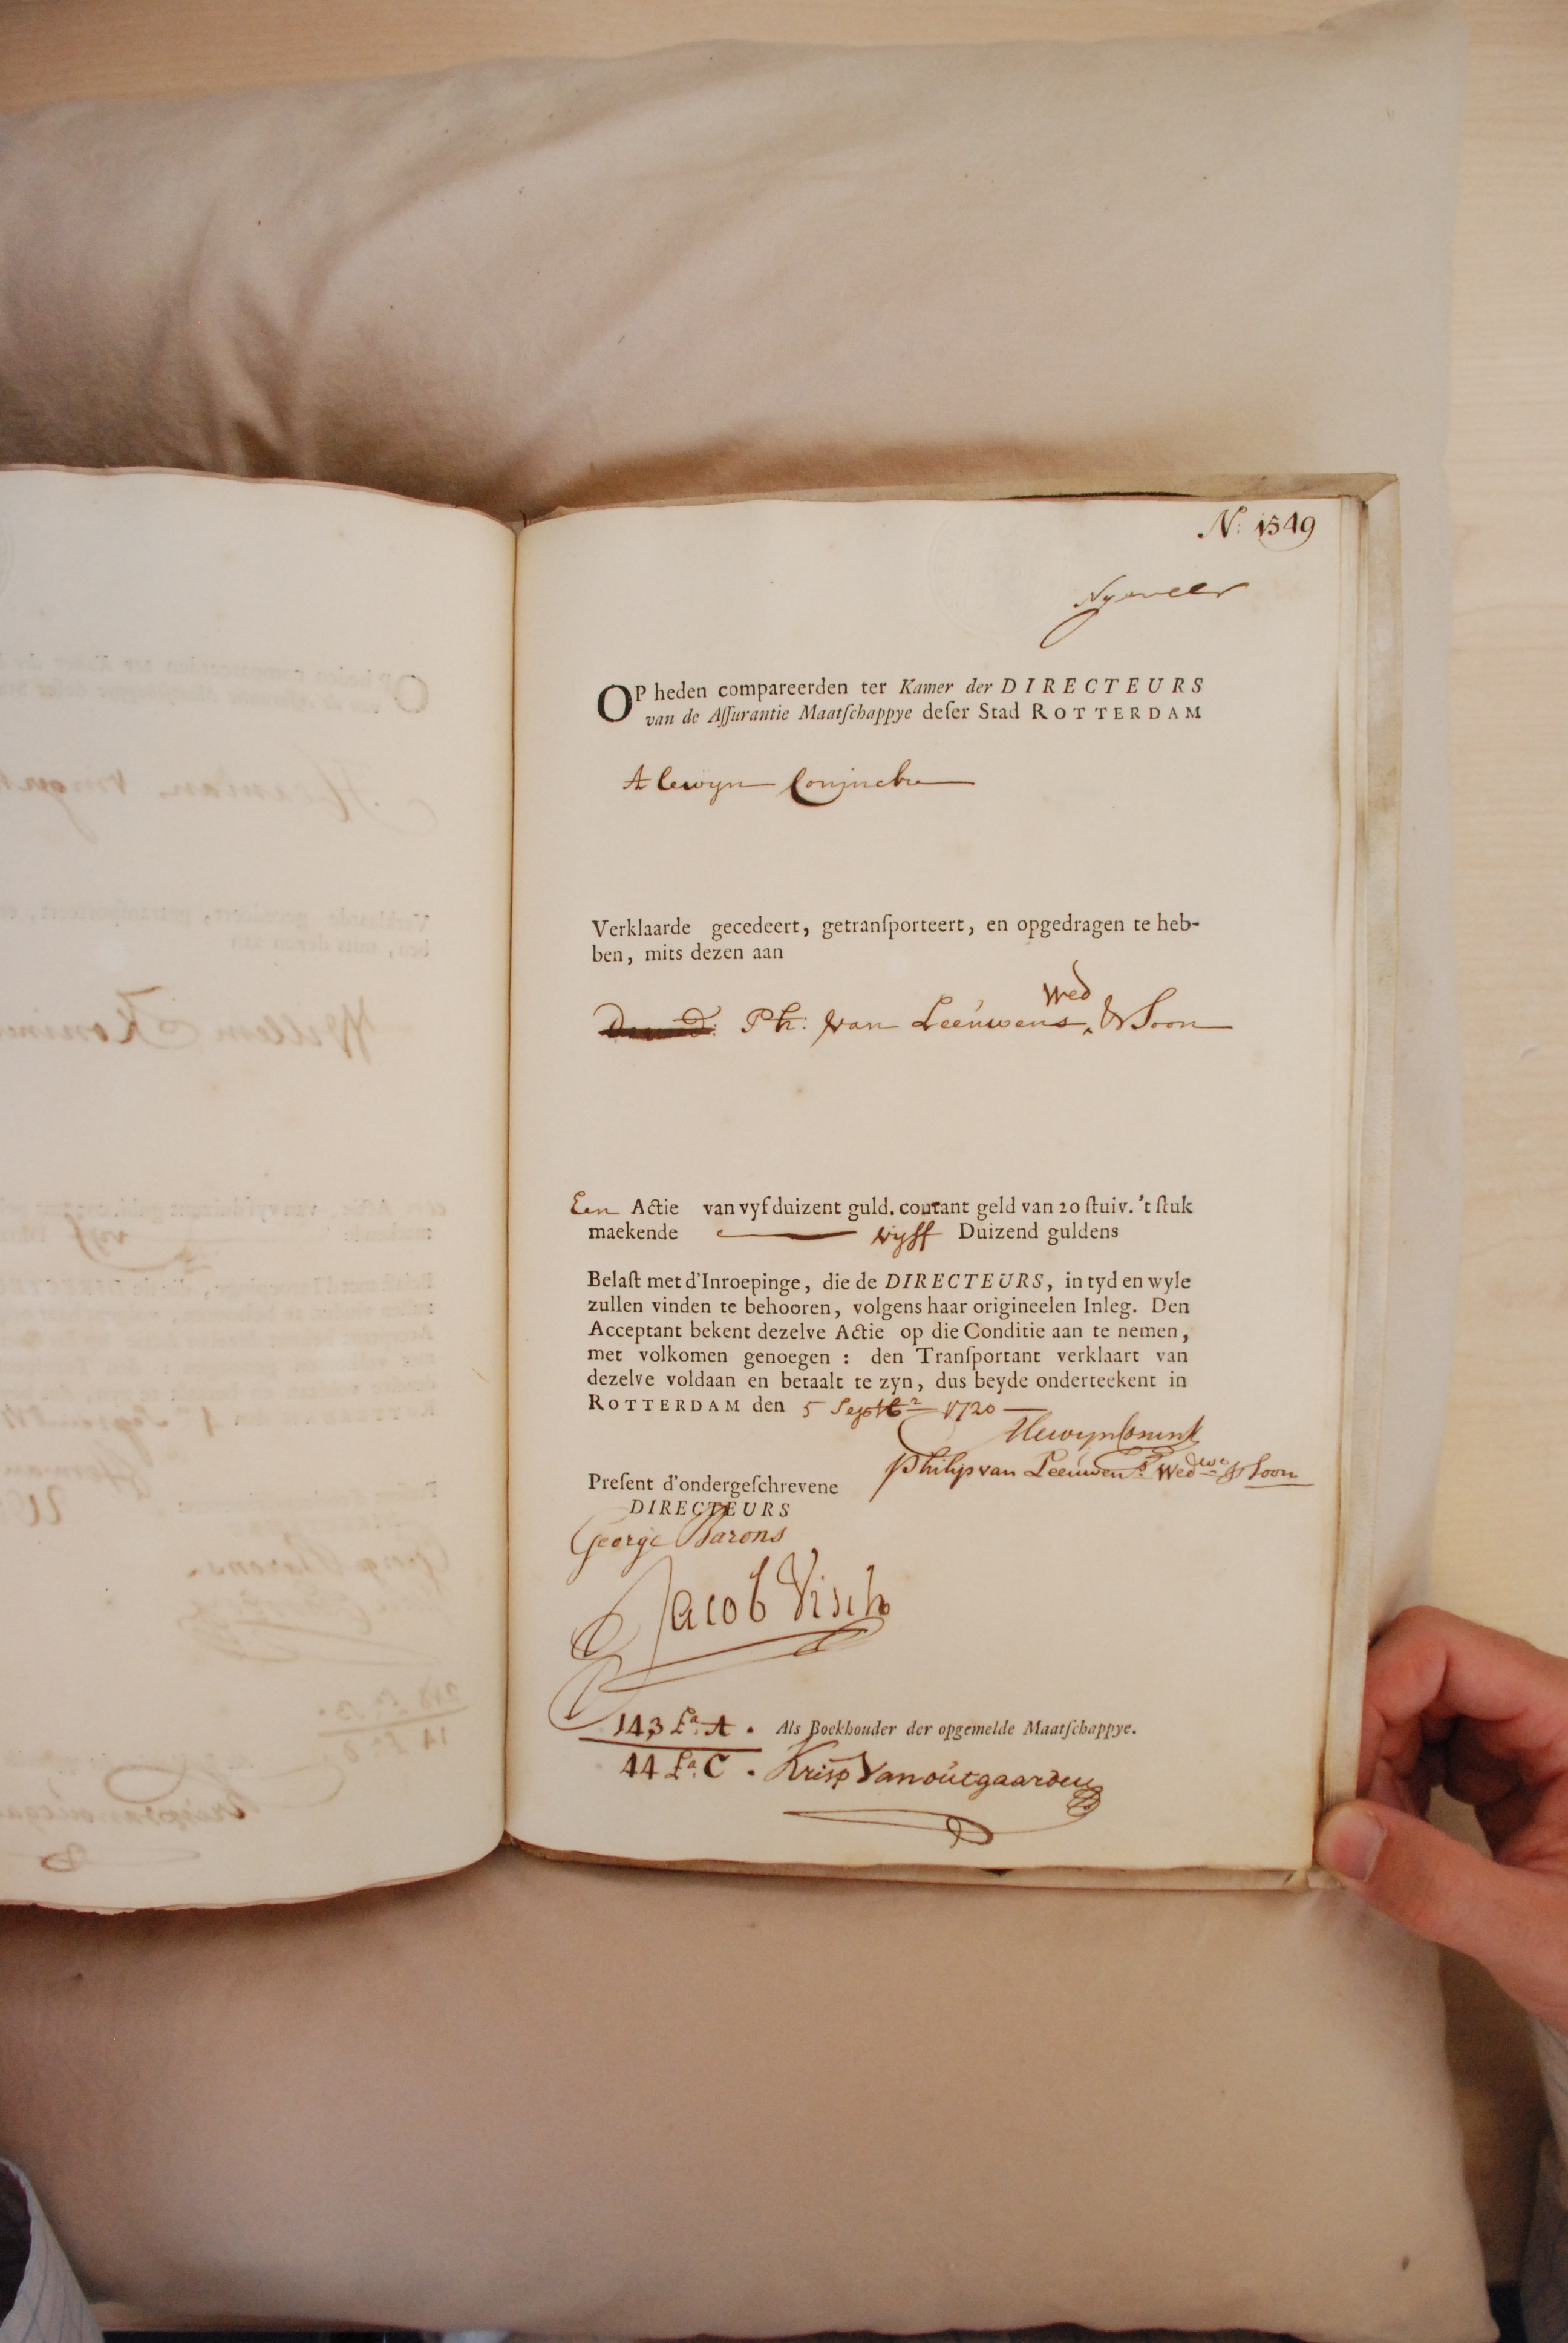 N: 1549
OP heden compareerden ter Kamer der DIRECTEURS
van de Aſſurantie Maatſchappye deſer Stad ROTTERDAM
Alewyn Coninck
Verklaarde gecedeert, getranſporteert, en opgedragen te heb-
ben, mits dezen aan
Wed
Ph: van Leeuwens & Soon
Een Actie van vyfduizent guld. courant geld van 20 ſtuiv. 't ſtuk
maekende vyff Duizend guldens
Belaſt met d'Inroepinge, die de DIRECTEURS, in tyd en wyle
zullen vinden te behooren, volgens haar origineelen Inleg. Den
Acceptant bekent dezelve Actie op die Conditie aan te nemen,
met volkomen genoegen : den Tranſportant verklaart van
dezelve voldaan en betaalt te zyn, dus beyde onderteekent in
ROTTERDAM den 5 Septbr 1720
Alewyn Conink
Philip van Leeuwens Wedwe & Soon
Preſent d'ondergeſchrevene
DIRECTEURS
George Barons
Jacob Visch
143 La A. Als Boekhouder der opgemelde Maatſchappye.
44 La C. Krisp Vanoutgaarden